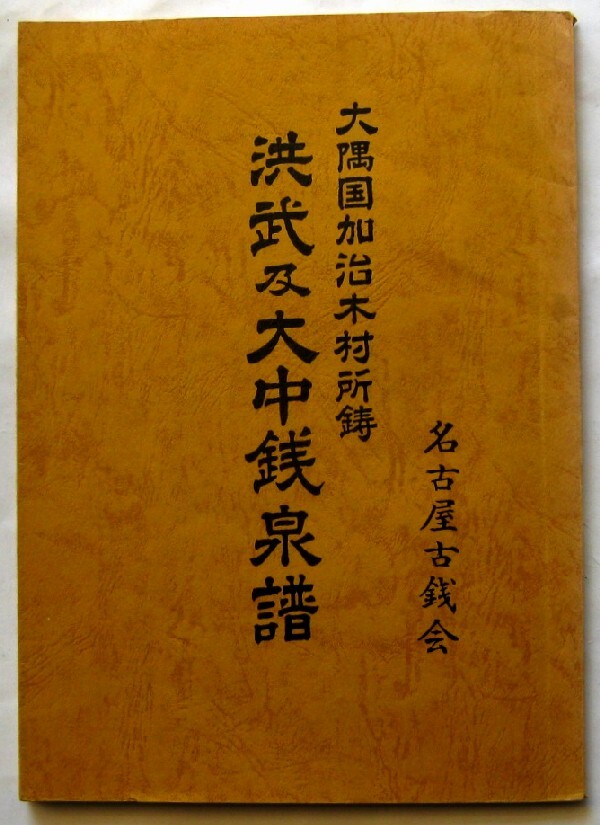 名古屋古銭会
大隅国加治木村所鋳
洪武及大中銭泉譜